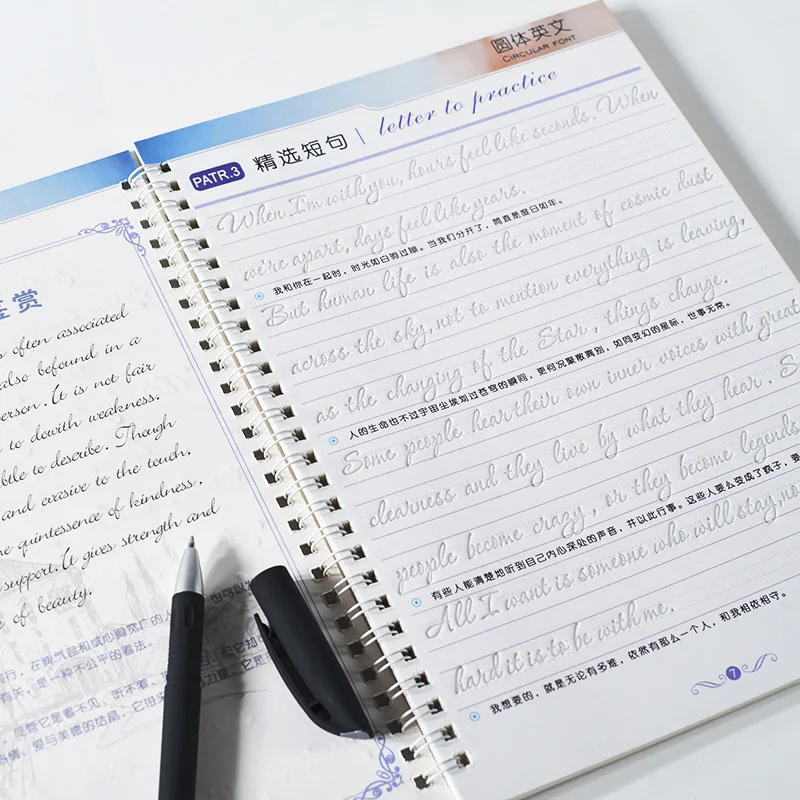 赏
often associated
also bofound in a
person. It is not fair
to dowith weakness.
to describe. Though
and evasive to the touch,
quintessence of kindness,
support. It gives strength and
of beauty.
在脾气器和
有关, 是一种不公平的看法。
尽管它是看不见, 听不着
爱与美德的结晶
圆体英文
CIRCULAR FONT
PATR.3 精选短句 | letter to practice
When I'm with you, hours feel like seconds. When
we're apart, days feel like years.
我和你在一起时, 时光如白驹过隙。当我们分开了, 简直是度日如年。
But human life is also the moment of cosmic dust
across the sky, not to mention everything is leaving,
as the changing of the Star, things change.
人的生命也不过宇宙尘埃划过苍穹的瞬间, 更何况聚散离别, 如同变幻的星际, 世事无常。
Some people hear their own inner voices with great
clearness and they live by what they hear. S
people become crazy, or they become legends
有些人能清楚地听到自己内心深处的声音, 并以此行事。这些人要么变成了疯子, 要
All I want is someone who will stay, no
hard it is to be with me.
我想要的, 就是无论有多难, 依然有那么一个人, 和我相依相守。
7